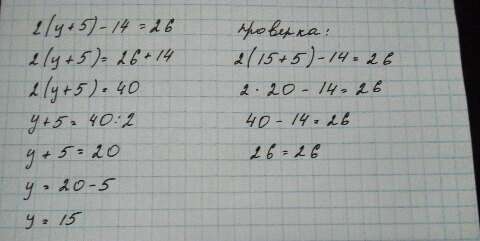 2(y+5)-14=26
2(y+5)=26+14
2(y+5)=40
y+5=40:2
y+5=20
y=20-5
y=15
проверка:
2(15+5)-14=26
2·20-14=26
40-14=26
26=26